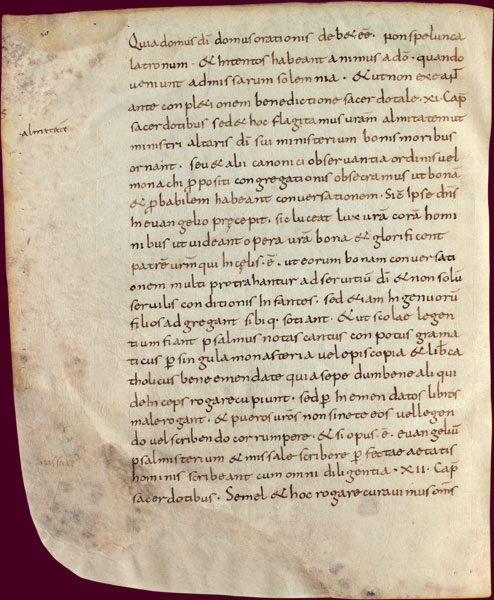 Quia domus dī domus orationis deb& eē. non spelunca
latronum. & intentos habeant animus ad ō. quando
veniunt ad missarum solemnia. & ut non exeant
ante conpl&ionem benedictione sacerdotale. XI. Cap
sacerdotibus sed & hoc flagitamus uram almitatem ut
almitatē
ministri altaris dī sui ministerium bonis moribus
ornant. seu & alii canonici observantia ordinis vel
monachi ppositi congregationis obsecramus ut bona
& pbabilem habeant conversationem. Sic Ipse dns
In evangelio precepit. sic luceat lux urā corā homi
nibus ut videant opera urā bona & glorificent
patrē urm qui In celis. ē. ut eorum bonam conversati
onem multi protrahantur ad servitiū dī & non solū
servilis conditionis Infantes. sed & iam Ingenuorū
filios adgregant sibiq. sotiant. & ut scolae legen
tium fiant psalmus notas cantus conpotus grama
ticus p singula monasteria vel episcopia & lib ca
tholicus bene emendate quia sepe dum bene aliqui
deInceps rogare cupiunt. sed p Inemendatos libros
male rogant. & pueros uros non sinete eos vel legen
do vel scribendo corrumpere. & si opus. ē. evangeliū
psalmisterium & missale scribere pfectae aetatis
hominis scribeant cum omni diligentia. XII. Cap
sacerdotibus. Semel & hoc rogare curavimus om̄s